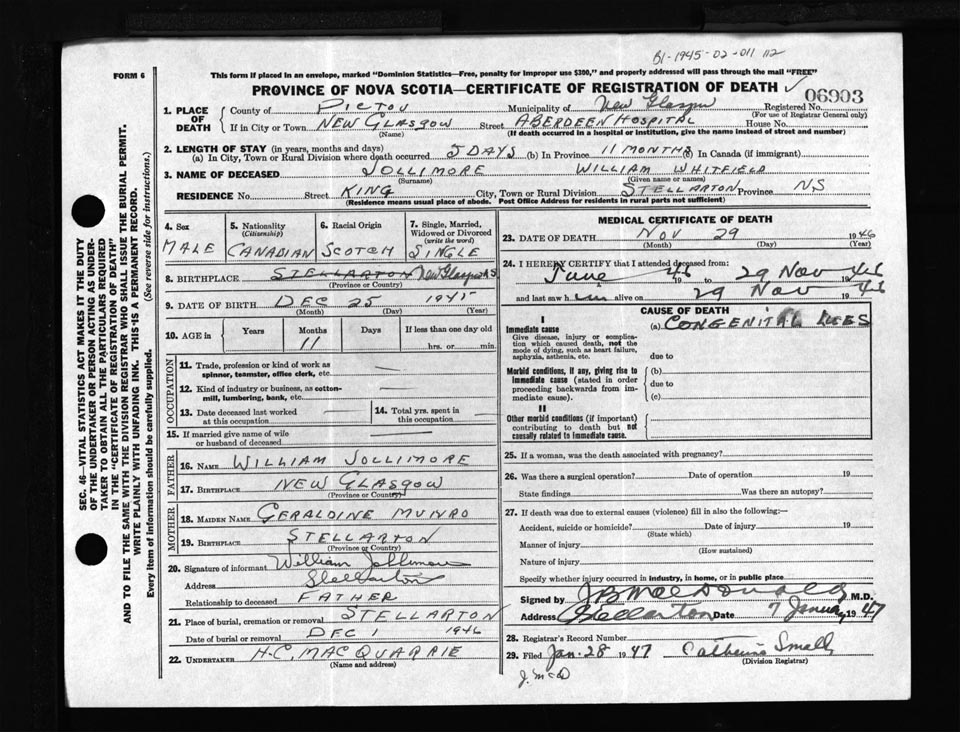 B1-1945-02-011 112
FORM 6
This form if placed in an envelope, marked "Dominion Statistics—Free, penalty for improper use $300," and properly addressed will pass through the mail "FREE"
PROVINCE OF NOVA SCOTIA—CERTIFICATE OF REGISTRATION OF DEATH ✓
06903
1. PLACE OF DEATH { County of PICTOU Municipality of New Glasgow Registered No.
(For use of Registrar General only)
If in City or Town NEW GLASGOW Street ABERDEEN HOSPITAL House No.
(Name) (If death occurred in a hospital or institution, give the name instead of street and number)
2. LENGTH OF STAY (in years, months and days)
(a) In City, Town or Rural Division where death occurred 5 DAYS (b) In Province 11 MONTHS (c) In Canada (if immigrant)
3. NAME OF DECEASED JOLLIMORE WILLIAM WHITFIELD
(Surname) (Given name or names)
RESIDENCE No. Street KING City, Town or Rural Division STELLARTON Province NS
(Residence means usual place of abode. Post Office Address for residents in rural parts not sufficient)
4. Sex
MALE
5. Nationality
(Citizenship)
CANADIAN
6. Racial Origin
SCOTCH
7. Single, Married, Widowed or Divorced
(write the word)
SINGLE
8. BIRTHPLACE STELLARTON New Glasgow N.S
(Province or Country)
9. DATE OF BIRTH DEC 25 1945
(Month) (Day) (Year)
10. AGE in { Years Months Days If less than one day old
11 hrs. or min.
OCCUPATION
11. Trade, profession or kind of work as
spinner, teamster, office clerk, etc. —
12. Kind of industry or business, as cotton-
mill, lumbering, bank, etc. —
13. Date deceased last worked
at this occupation —
14. Total yrs. spent in
this occupation —
15. If married give name of wife
or husband of deceased —
FATHER
16. NAME WILLIAM JOLLIMORE
17. BIRTHPLACE NEW GLASGOW
(Province or Country)
MOTHER
18. MAIDEN NAME GERALDINE MUNRO
19. BIRTHPLACE STELLARTON
(Province or Country)
20. Signature of informant William Jollimore
Address Stellarton
Relationship to deceased FATHER
21. Place of burial, cremation or removal STELLARTON
Date of burial or removal DEC 1 1946
22. UNDERTAKER H.C. MACQUARRIE
(Name and address)
MEDICAL CERTIFICATE OF DEATH
23. DATE OF DEATH NOV 29 1946
(Month) (Day) (Year)
24. I HEREBY CERTIFY that I attended deceased from:
June 1946 to 29 Nov 1946
and last saw him alive on 29 Nov 1946
CAUSE OF DEATH
I
Immediate cause
Give disease, injury or complica-
tion which caused death, not the
mode of dying, such as heart failure,
asphyxia, asthenia, etc.
(a) CONGENITAL LUES
due to
Morbid conditions, if any, giving rise to
immediate cause (stated in order
proceeding backwards from im-
mediate cause).
(b)
due to
(c)
II
Other morbid conditions (if important)
contributing to death but not
causally related to immediate cause.
25. If a woman, was the death associated with pregnancy?
26. Was there a surgical operation? Date of operation 19
State findings Was there an autopsy?
27. If death was due to external causes (violence) fill in also the following:—
Accident, suicide or homicide? Date of injury 19
(State which)
Manner of injury
(How sustained)
Nature of injury
Specify whether injury occurred in industry, in home, or in public place
Signed by J B MacDonald M.D.
Address Stellarton Date 7 January 1947
28. Registrar's Record Number
29. Filed Jan. 28 1947 Catherine Small
(Division Registrar)
J. McD
SEC. 46—VITAL STATISTICS ACT MAKES IT THE DUTY
OF THE UNDERTAKER OR PERSON ACTING AS UNDER-
TAKER TO OBTAIN ALL THE PARTICULARS REQUIRED
IN THE "CERTIFICATE OF REGISTRATION OF DEATH"
AND TO FILE THE SAME WITH THE DIVISION REGISTRAR WHO SHALL ISSUE THE BURIAL PERMIT.
WRITE PLAINLY WITH UNFADING INK. THIS IS A PERMANENT RECORD.
Every item of information should be carefully supplied. (See reverse side for instructions.)